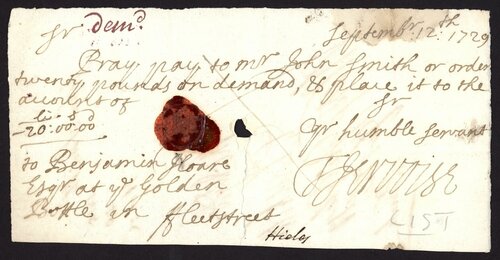 Sr demd. Septembr. 12th 1729
Pray pay to mr John Smith or order
twenty pounds on demand, & place it to the
account of Sr
li: s d
-20:00:00 yr humble servant
to Benjamin Hoare
Esqr at ye Golden
Bottle in ffleetstreet
LIST